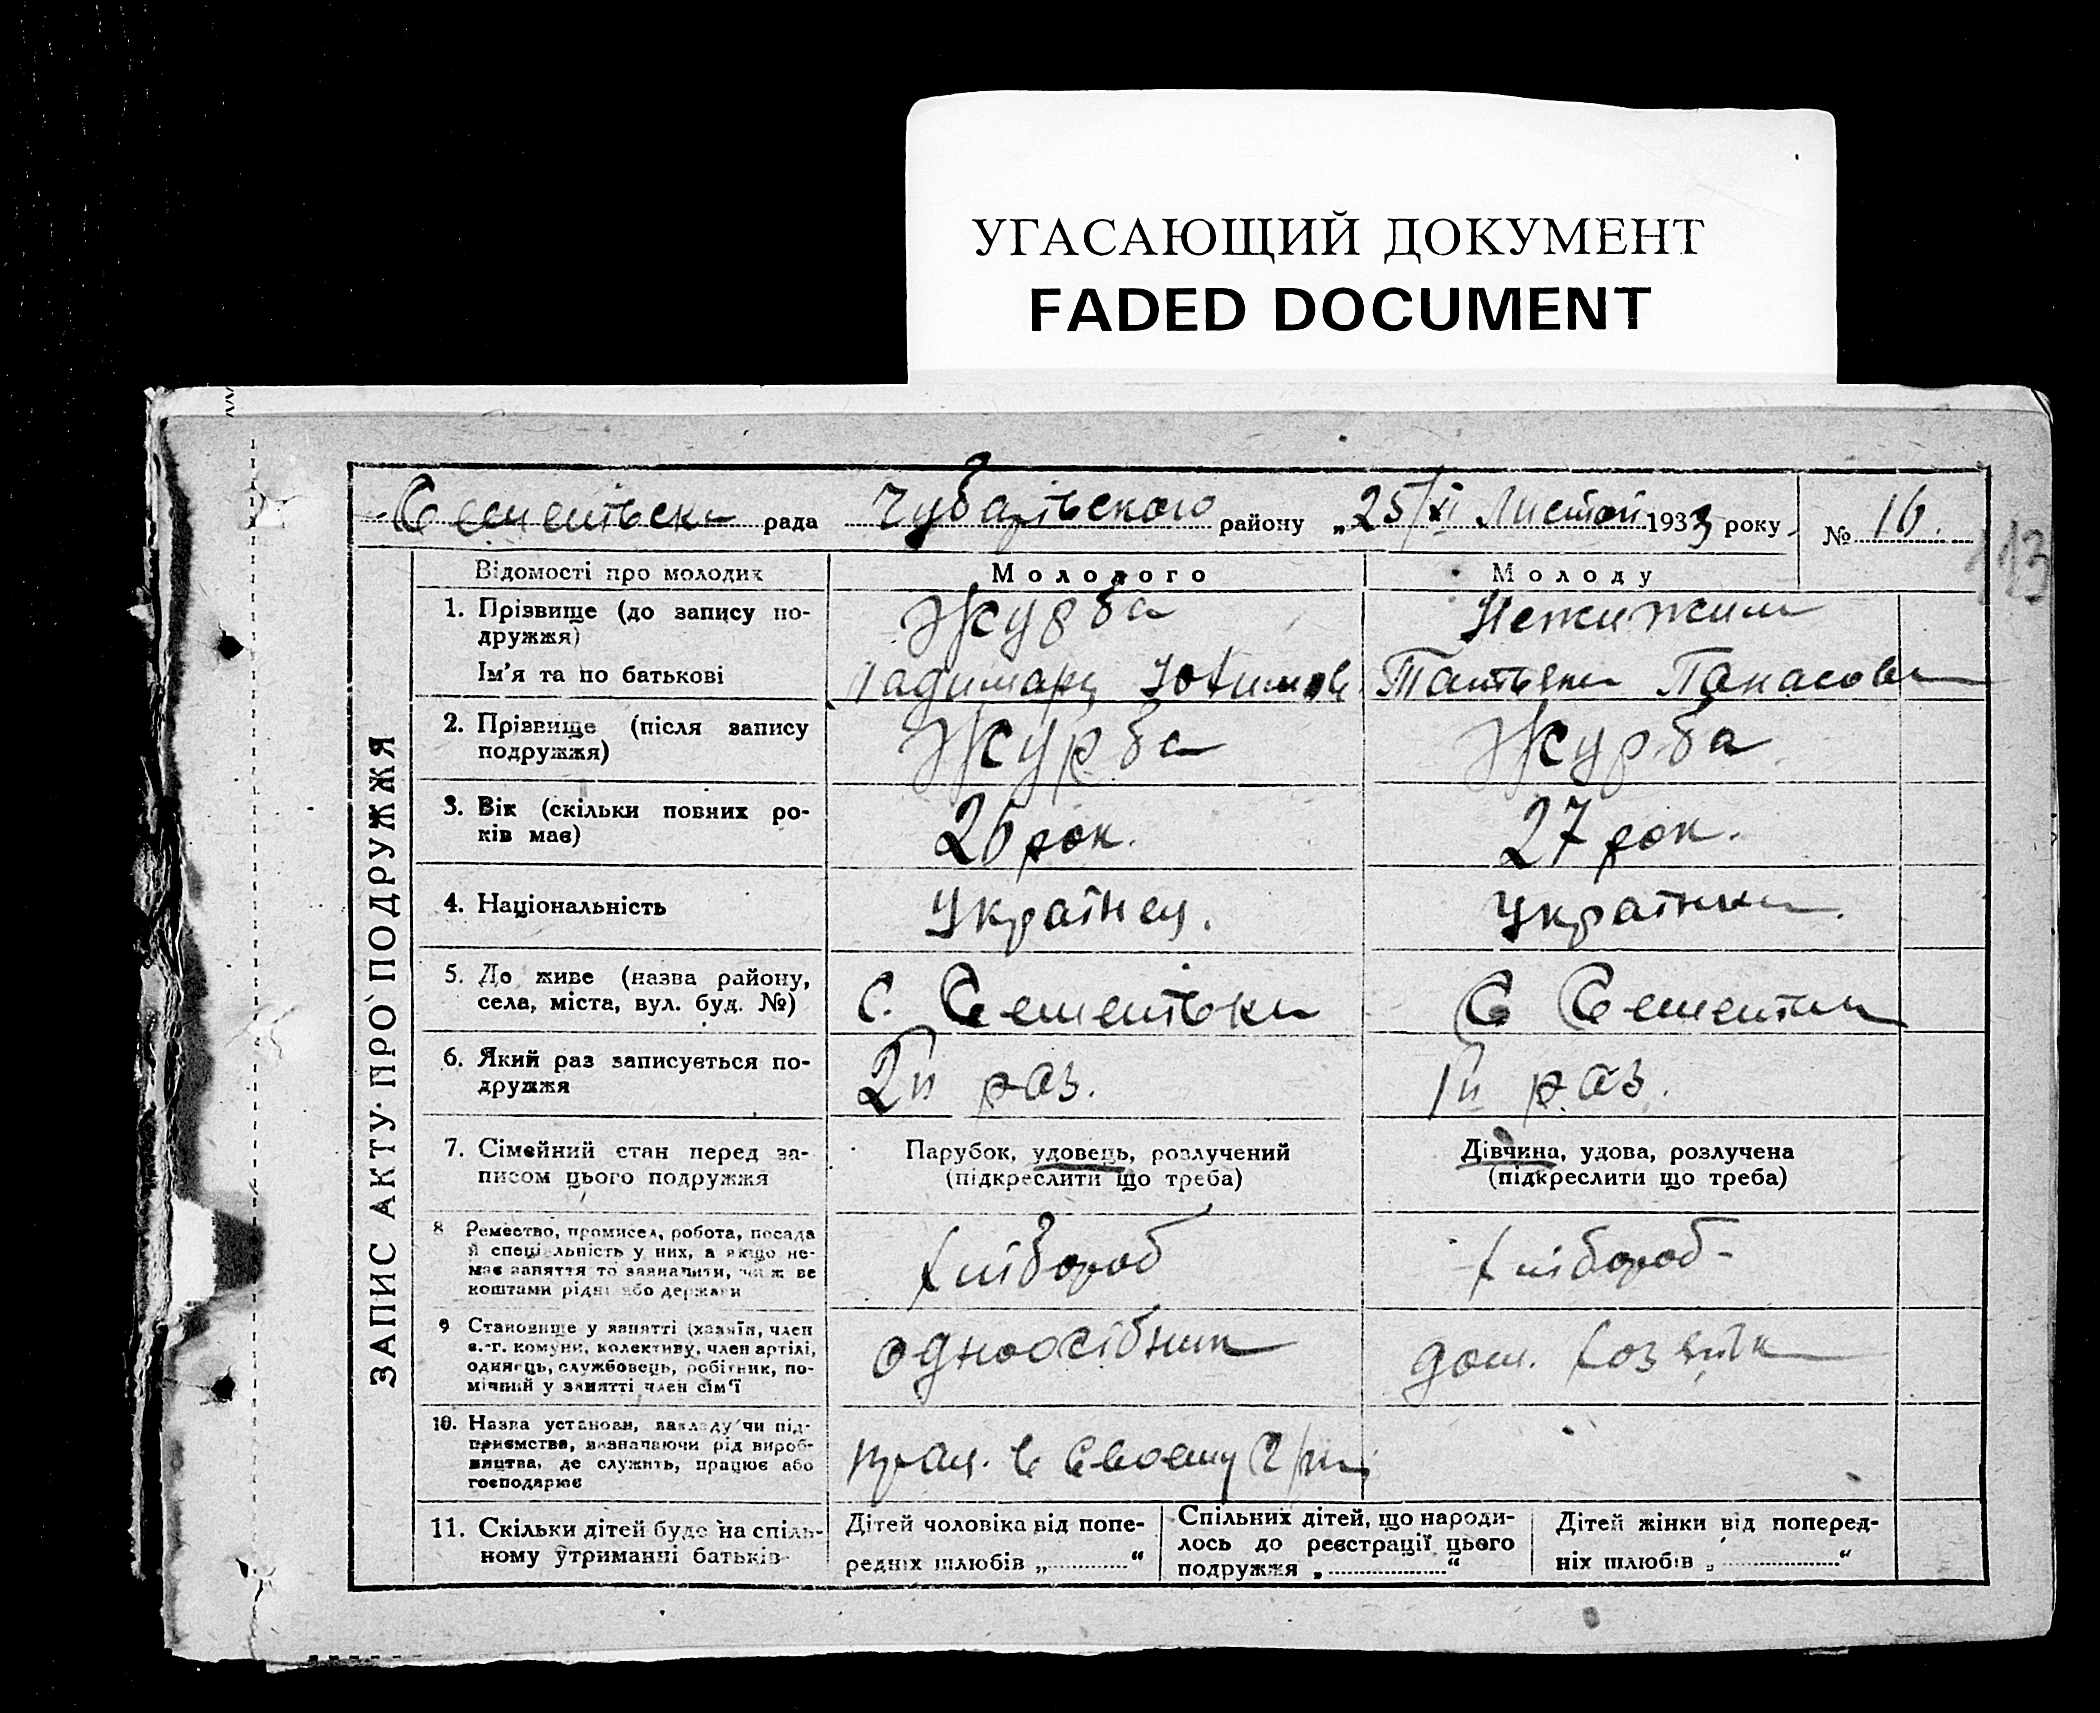 УГАСАЮЩИЙ ДОКУМЕНТ
FADED DOCUMENT
Семенівська рада Чубарівського району „25/XI Листоп 1933 року № 16.
113
ЗАПИС АКТУ ПРО ПОДРУЖЖЯ
Відомості про молодих
Молодого
Молоду
1. Прізвище (до запису по-
дружжя)
Журба
Нежижим
Ім'я та по батькові
Юхимов
Татьяна Панасов
2. Прізвище (після запису
подружжя)
Журба
Журба
3. Вік (скільки повних ро-
ків має)
26 рок.
27 рок.
4. Національність
Українец.
Українка
5. Де живе (назва району,
села, міста, вул. буд. №)
с. Семенівка
С Семенівка
6. Який раз записується по-
дружжя
2й раз.
1й раз.
7. Сімейний стан перед за-
писом цього подружжя
Парубок, удовець, розлучений
(підкреслити що треба)
Дівчина, удова, розлучена
(підкреслити що треба)
8 Ремество, промисел, робота, посада
й спеціальність у них, а якщо не-
має заняття то зазначити, чиїм ве
коштами рідні або держави
хлібороб
хлібороб-
9 Становище у занятті (хазяїн, член
с.-г. комуни, колективу, член артілі,
одинець, службовець, робітник, по-
мічний у занятті член сім'ї
одноосібник
дом. хозяйка
10. Назва установи, закладу чи під-
приємства, визначаючи рід вироб-
ництва, де служить, працює або
господарює
прац. в своему
11. Скільки дітей буде на спіль-
ному утриманні батьків
Дітей чоловіка від попе-
редніх шлюбів „ “
Спільних дітей, що народи-
лось до реєстрації цього
подружжя „ “
Дітей жінки від поперед-
ніх шлюбів „ “